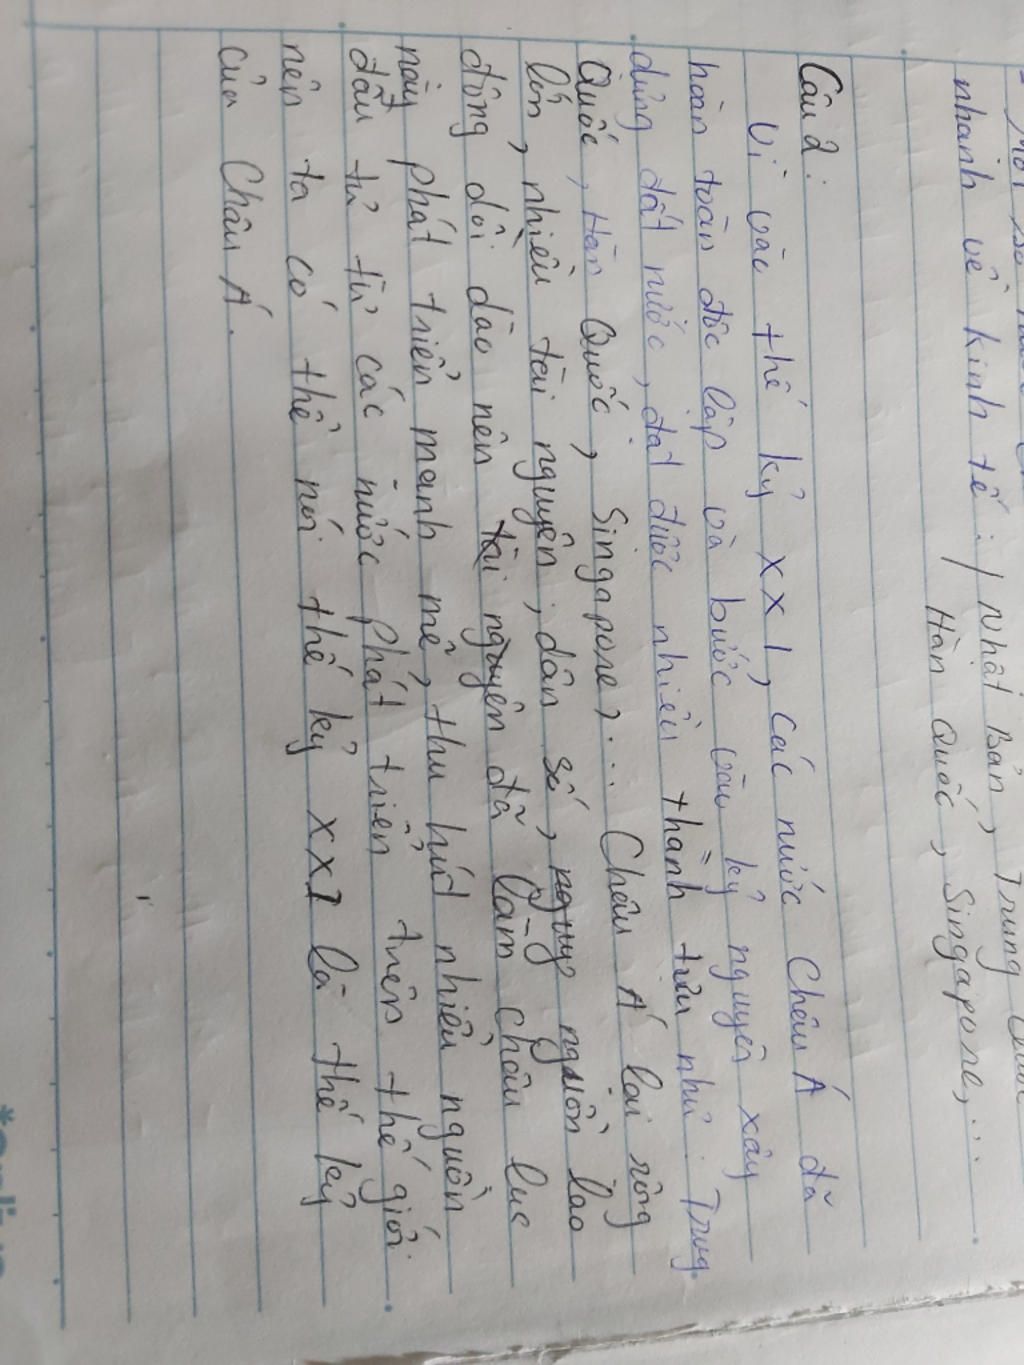 nhanh về kinh tế: / Nhật Bản, Trung Quốc
Hàn Quốc, Singapore,...
Câu 2:
Vì vào thế kỷ XXI, các nước Châu Á đã
hoàn toàn độc lập và bước vào kỷ nguyên xây
dựng đất nước, đạt được nhiều thành tựu như: Trung
Quốc, Hàn Quốc, Singapore,... Châu Á lại rộng
lớn, nhiều tài nguyên, dân số, nguồn lao
động dồi dào nên tài nguyên đã làm châu lục
này phát triển mạnh mẽ, thu hút nhiều nguồn
đầu tư từ các nước phát triển trên thế giới.
nên ta có thể nói thế kỷ XXI là thế kỷ
của Châu Á.